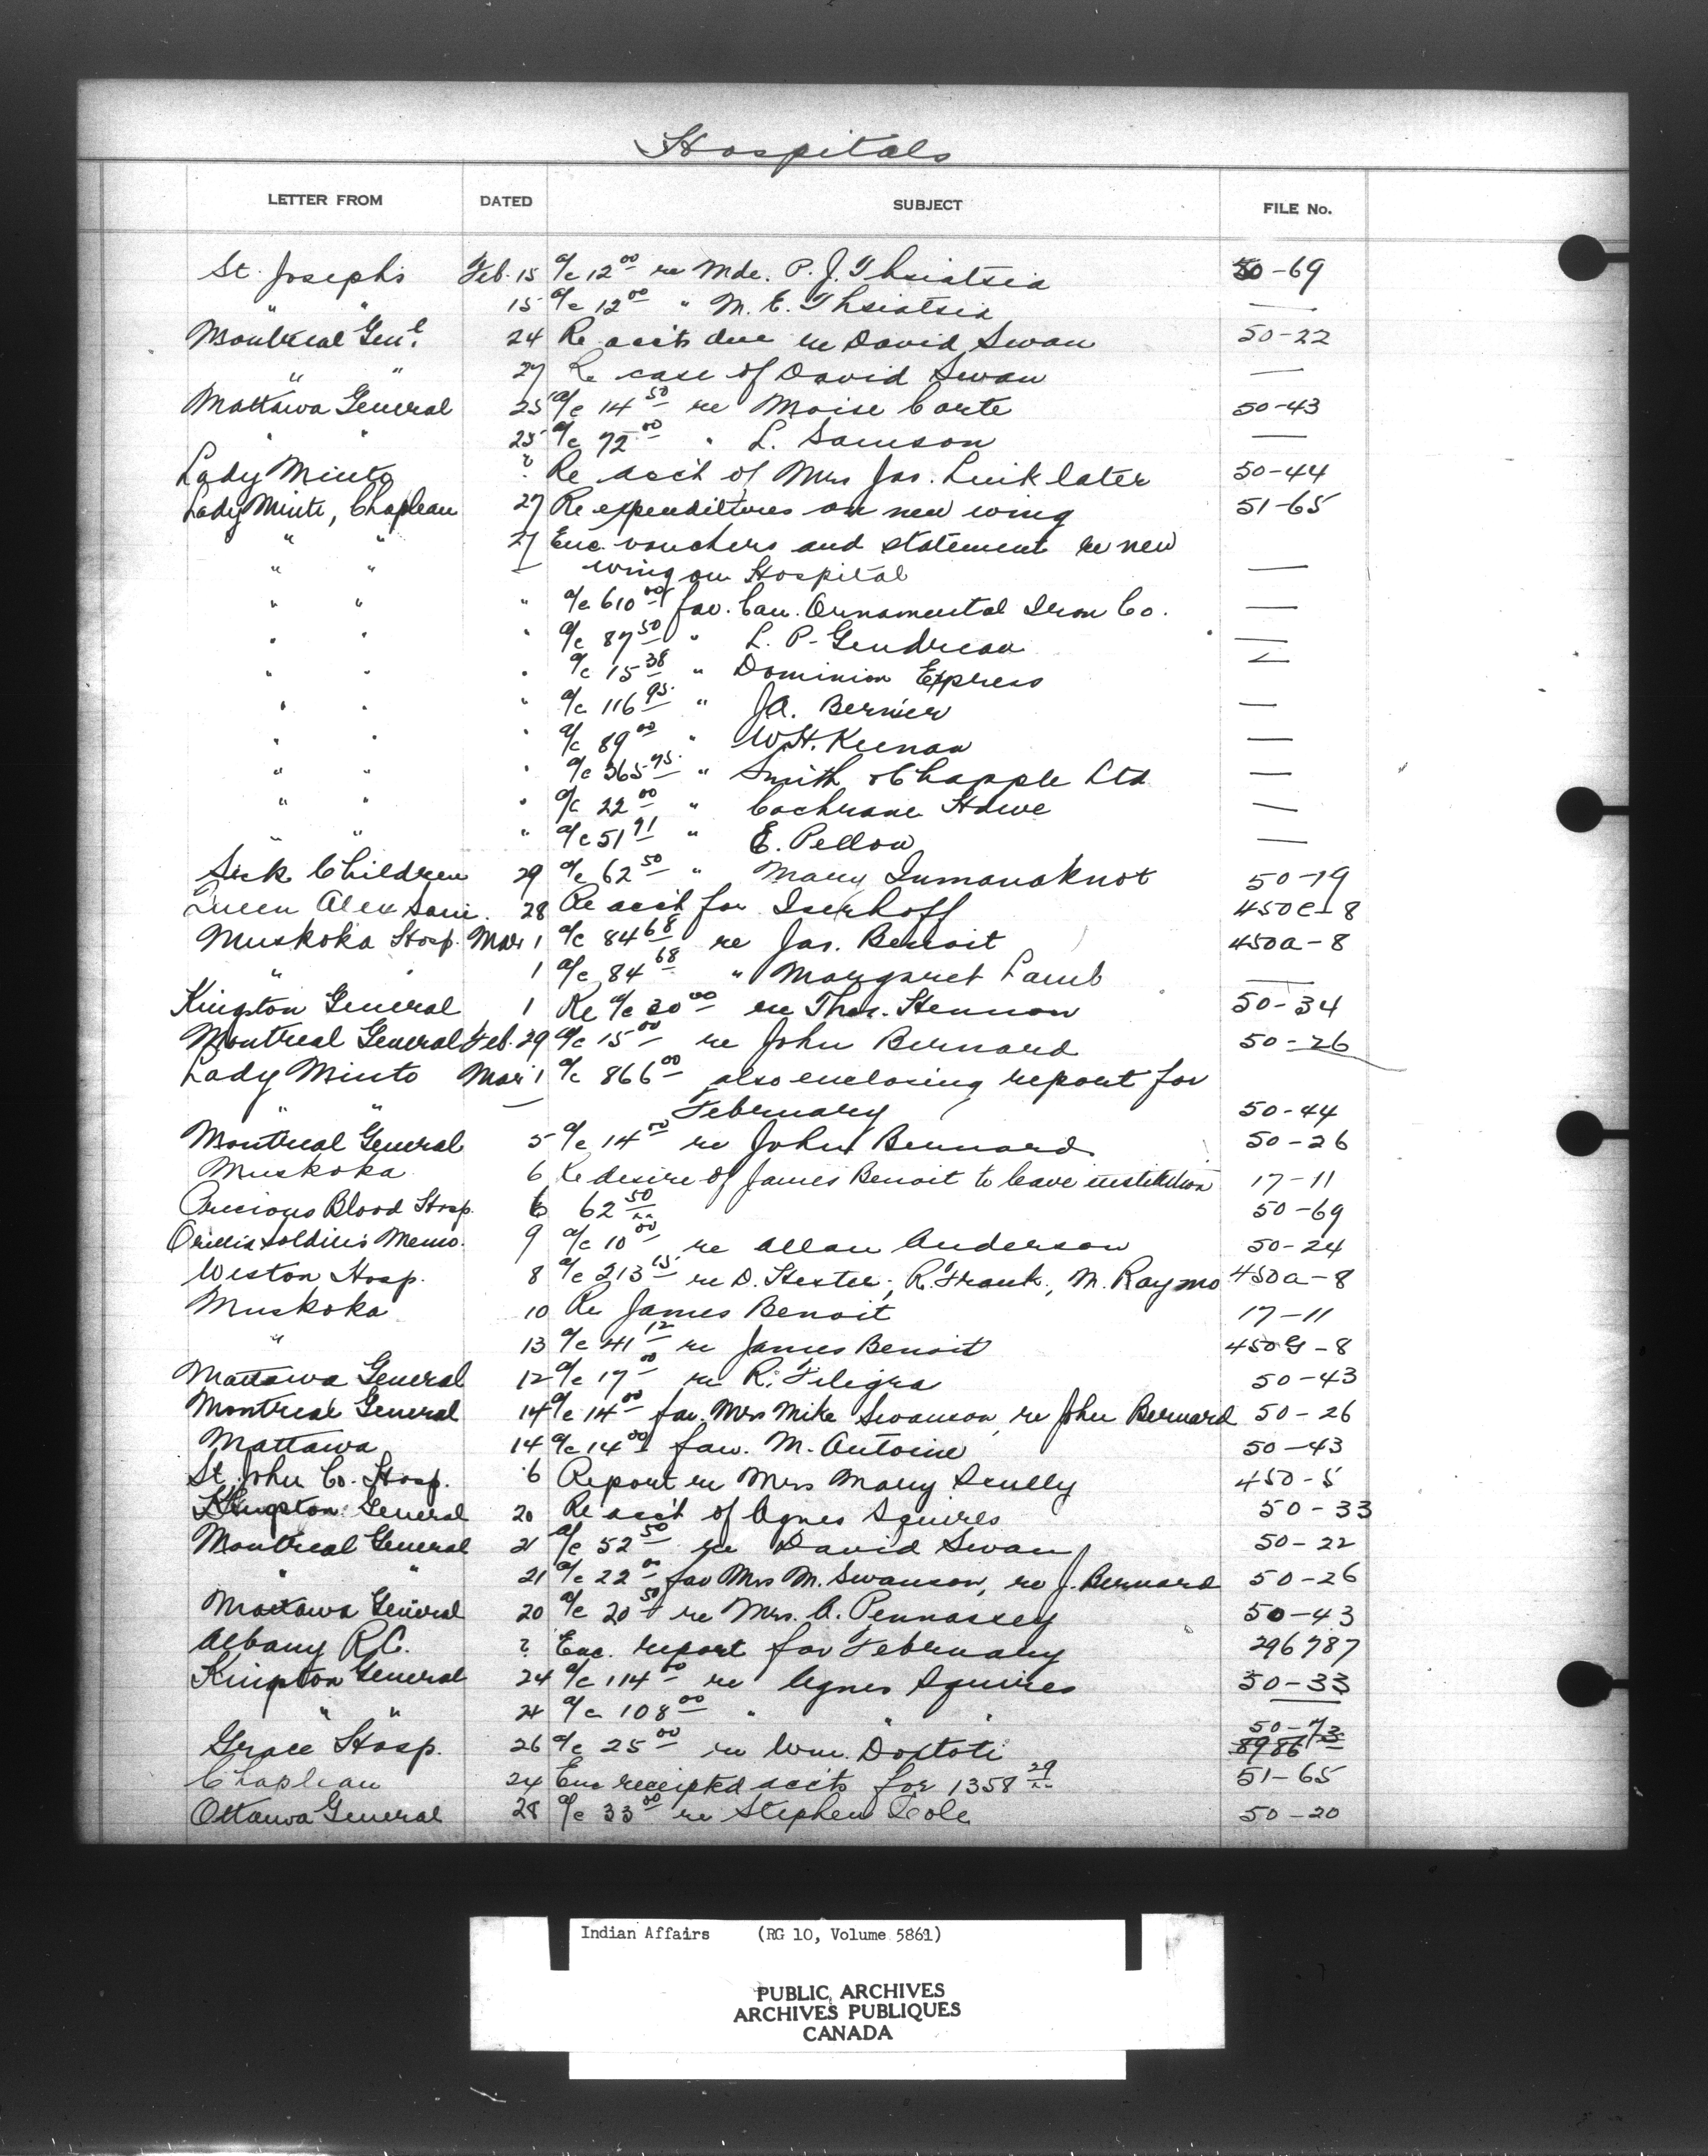 Hospitals
LETTER FROM DATED SUBJECT FILE No.
St. Joseph's Feb. 15 a/c 12.00 re Mde. P. J. Thsiatsia 50-69
" " 15 a/c 12.00 " M. E. Thsiatsia —
Montreal Gen'l 24 Re acct due re David Swan 50-22
" " 27 Re case of David Swan —
Mattawa General 25 a/c 14.50 re Moise Corte 50-43
" " 25 a/c 72.00 " L. Samson —
Lady Minto ? Re acc't of Mrs Jas. Linklater 50-44
Lady Minto, Chapleau 27 Re expenditures on new wing 51-65
" " 27 Enc. vouchers and statement re new
" " wing on Hospital —
" " " a/c 610.00 fav. Can. Ornamental Iron Co. —
" " " a/c 87.50 " L. P. Gendreau —
" " " a/c 15.38 " Dominion Express —
" " " a/c 116.95 " J.A. Bernier —
" " " a/c 89.00 " W.H. Keenan —
" " " a/c 365.95 " Smith & Chapple Ltd —
" " " a/c 22.00 " Cochrane Hdwe —
" " " a/c 51.91 " E. Pellow —
Sick Children 29 a/c 62.50 " Mary 50-19
Queen Alex Sani. 28 Re acc't for Iserhoff 450C-8
Muskoka Hosp. Mar 1 a/c 84.68 re Jas. Benoit 450a-8
" " 1 a/c 84.68 " Margaret Lamb —
Kingston General 1 Re a/c 30.00 re Thos. 50-34
Montreal General Feb. 29 a/c 15.00 re John Bernard 50-26
Lady Minto Mar 1 a/c 866.00 also enclosing report for
" " February 50-44
Montreal General 5 a/c 14.00 re John Bernard 50-26
Muskoka 6 Re desire of James Benoit to leave institution 17-11
Precious Blood Hosp. 6 62.50 50-69
Orillia Soldiers Memo. 9 a/c 10.00 re Allan Anderson 50-24
Weston Hosp. 8 a/c 213.15 re D. Hester, R. Frank, M. Raymo 450a-8
Muskoka 10 Re James Benoit 17-11
" 13 a/c 41.12 re James Benoit 450G-8
Mattawa General 12 a/c 17.00 re R. Filegra 50-43
Montreal General 14 a/c 14.00 fav. Mrs Mike Swanson, re John Bernard 50-26
Mattawa 14 a/c 14.00 fav. M. Antoine 50-43
St. John Co. Hosp. 6 Report re Mrs Mary Scully 450-5
Kingston General 20 Re acc't of Agnes Squires 50-33
Montreal General 21 a/c 52.50 re David Swan 50-22
" " 21 a/c 22.00 fav Mrs M. Swanson, re J. Bernard 50-26
Mattawa General 20 a/c 20.50 re Mrs. A. Pennassey 50-43
Albany R.C. ? Enc. report for February 296787
Kingston General 24 a/c 114.00 re Agnes Squires 50-33
" " 24 a/c 108.00 " " "
Grace Hosp. 26 a/c 25.00 re Wm. Doxtoti 50-73
Chapleau 24 Enc receipted accts for 1358.29 51-65
Ottawa General 28 a/c 33.00 re Stephen Cole 50-20
Indian Affairs (RG 10, Volume 5861)
PUBLIC ARCHIVES
ARCHIVES PUBLIQUES
CANADA